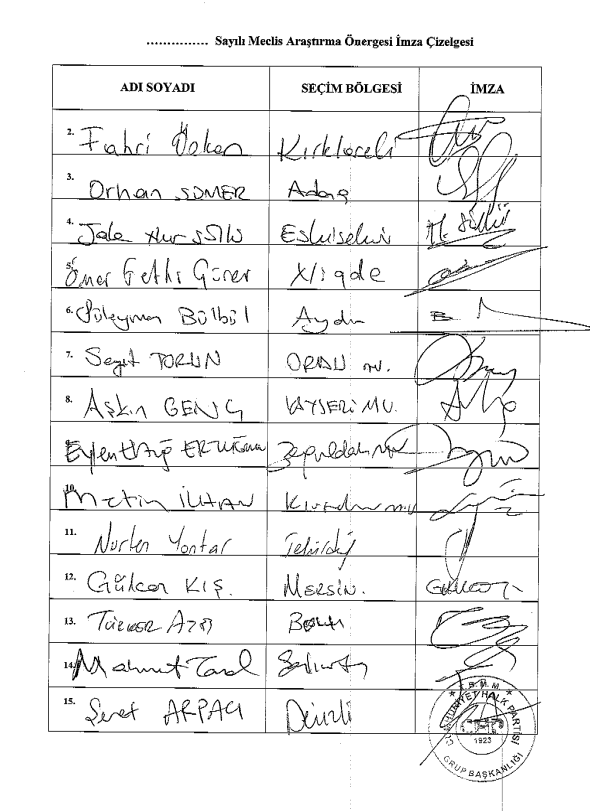 ............... Sayılı Meclis Araştırma Önergesi İmza Çizelgesi
ADI SOYADI SEÇİM BÖLGESİ İMZA
2. Fahri Özkan Kırklareli
3. Orhan SÜMER Adana
4. Jale Nur SÜLLÜ Eskişehir
5. Ömer Fethi Gürer Niğde
6. Süleyman Bülbül Aydın
7. Seyit TORUN ORDU mv.
8. Aşkın GENÇ KAYSERİ MV.
Eylem Ertuğ ERTUĞRUL Zonguldak
10. Metin İLHAN Kırşehir
11. Nurten Yontar Tekirdağ
12. Gülcan KIŞ MERSİN.
13. Türker Ateş Bolu
14. Mahmut Tanal Şanlıurfa
15. Şeref ARPACI Denizli
T.B.M.M.
CUMHURİYET HALK PARTİSİ
1923
GRUP BAŞKANLIĞI